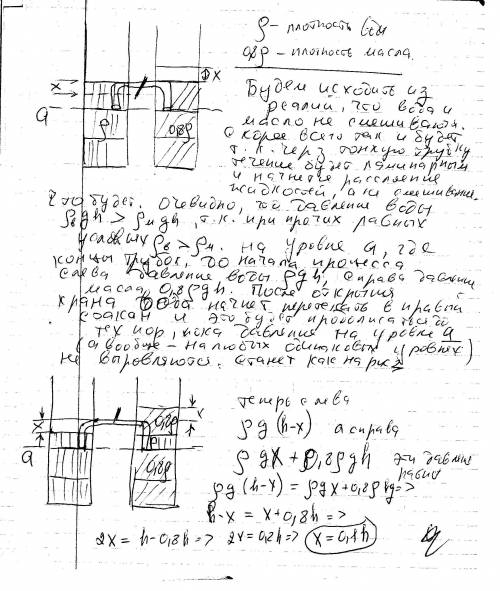 ρ - плотность воды
0,8ρ - плотность масла.
x
x
a
ρ
0,8ρ
Будем исходить из
реалий, что вода и
масло не смешиваются.
Скорее всего так и будет
т.к. через тонкую трубку
течение будет ламинарным
и начнётся расслоение
жидкостей, а не смешивание.
Что будет. Очевидно, что давление воды
ρвgh > ρмgh, т.к. при прочих равных
условиях ρв > ρм. На уровне a, где
концы трубок, до начала процесса
слева давление воды ρgh, справа давление
масла 0,8ρgh. После открытия
крана вода начнёт перетекать в правый
стакан и это будет продолжаться до
тех пор, пока давления на уровне a
(а вообще - на любых одинаковых уровнях)
не выровняются. Станет как на рис 2
x
x
a
0,8ρ
ρ
0,8ρ
теперь слева
ρg(h-x) а справа
ρgx + 0,8ρgh эти давления
равны
ρg(h-x) = ρgx + 0,8ρhg =>
h-x = x + 0,8h =>
2x = h - 0,8h => 2x = 0,2h => x = 0,1h